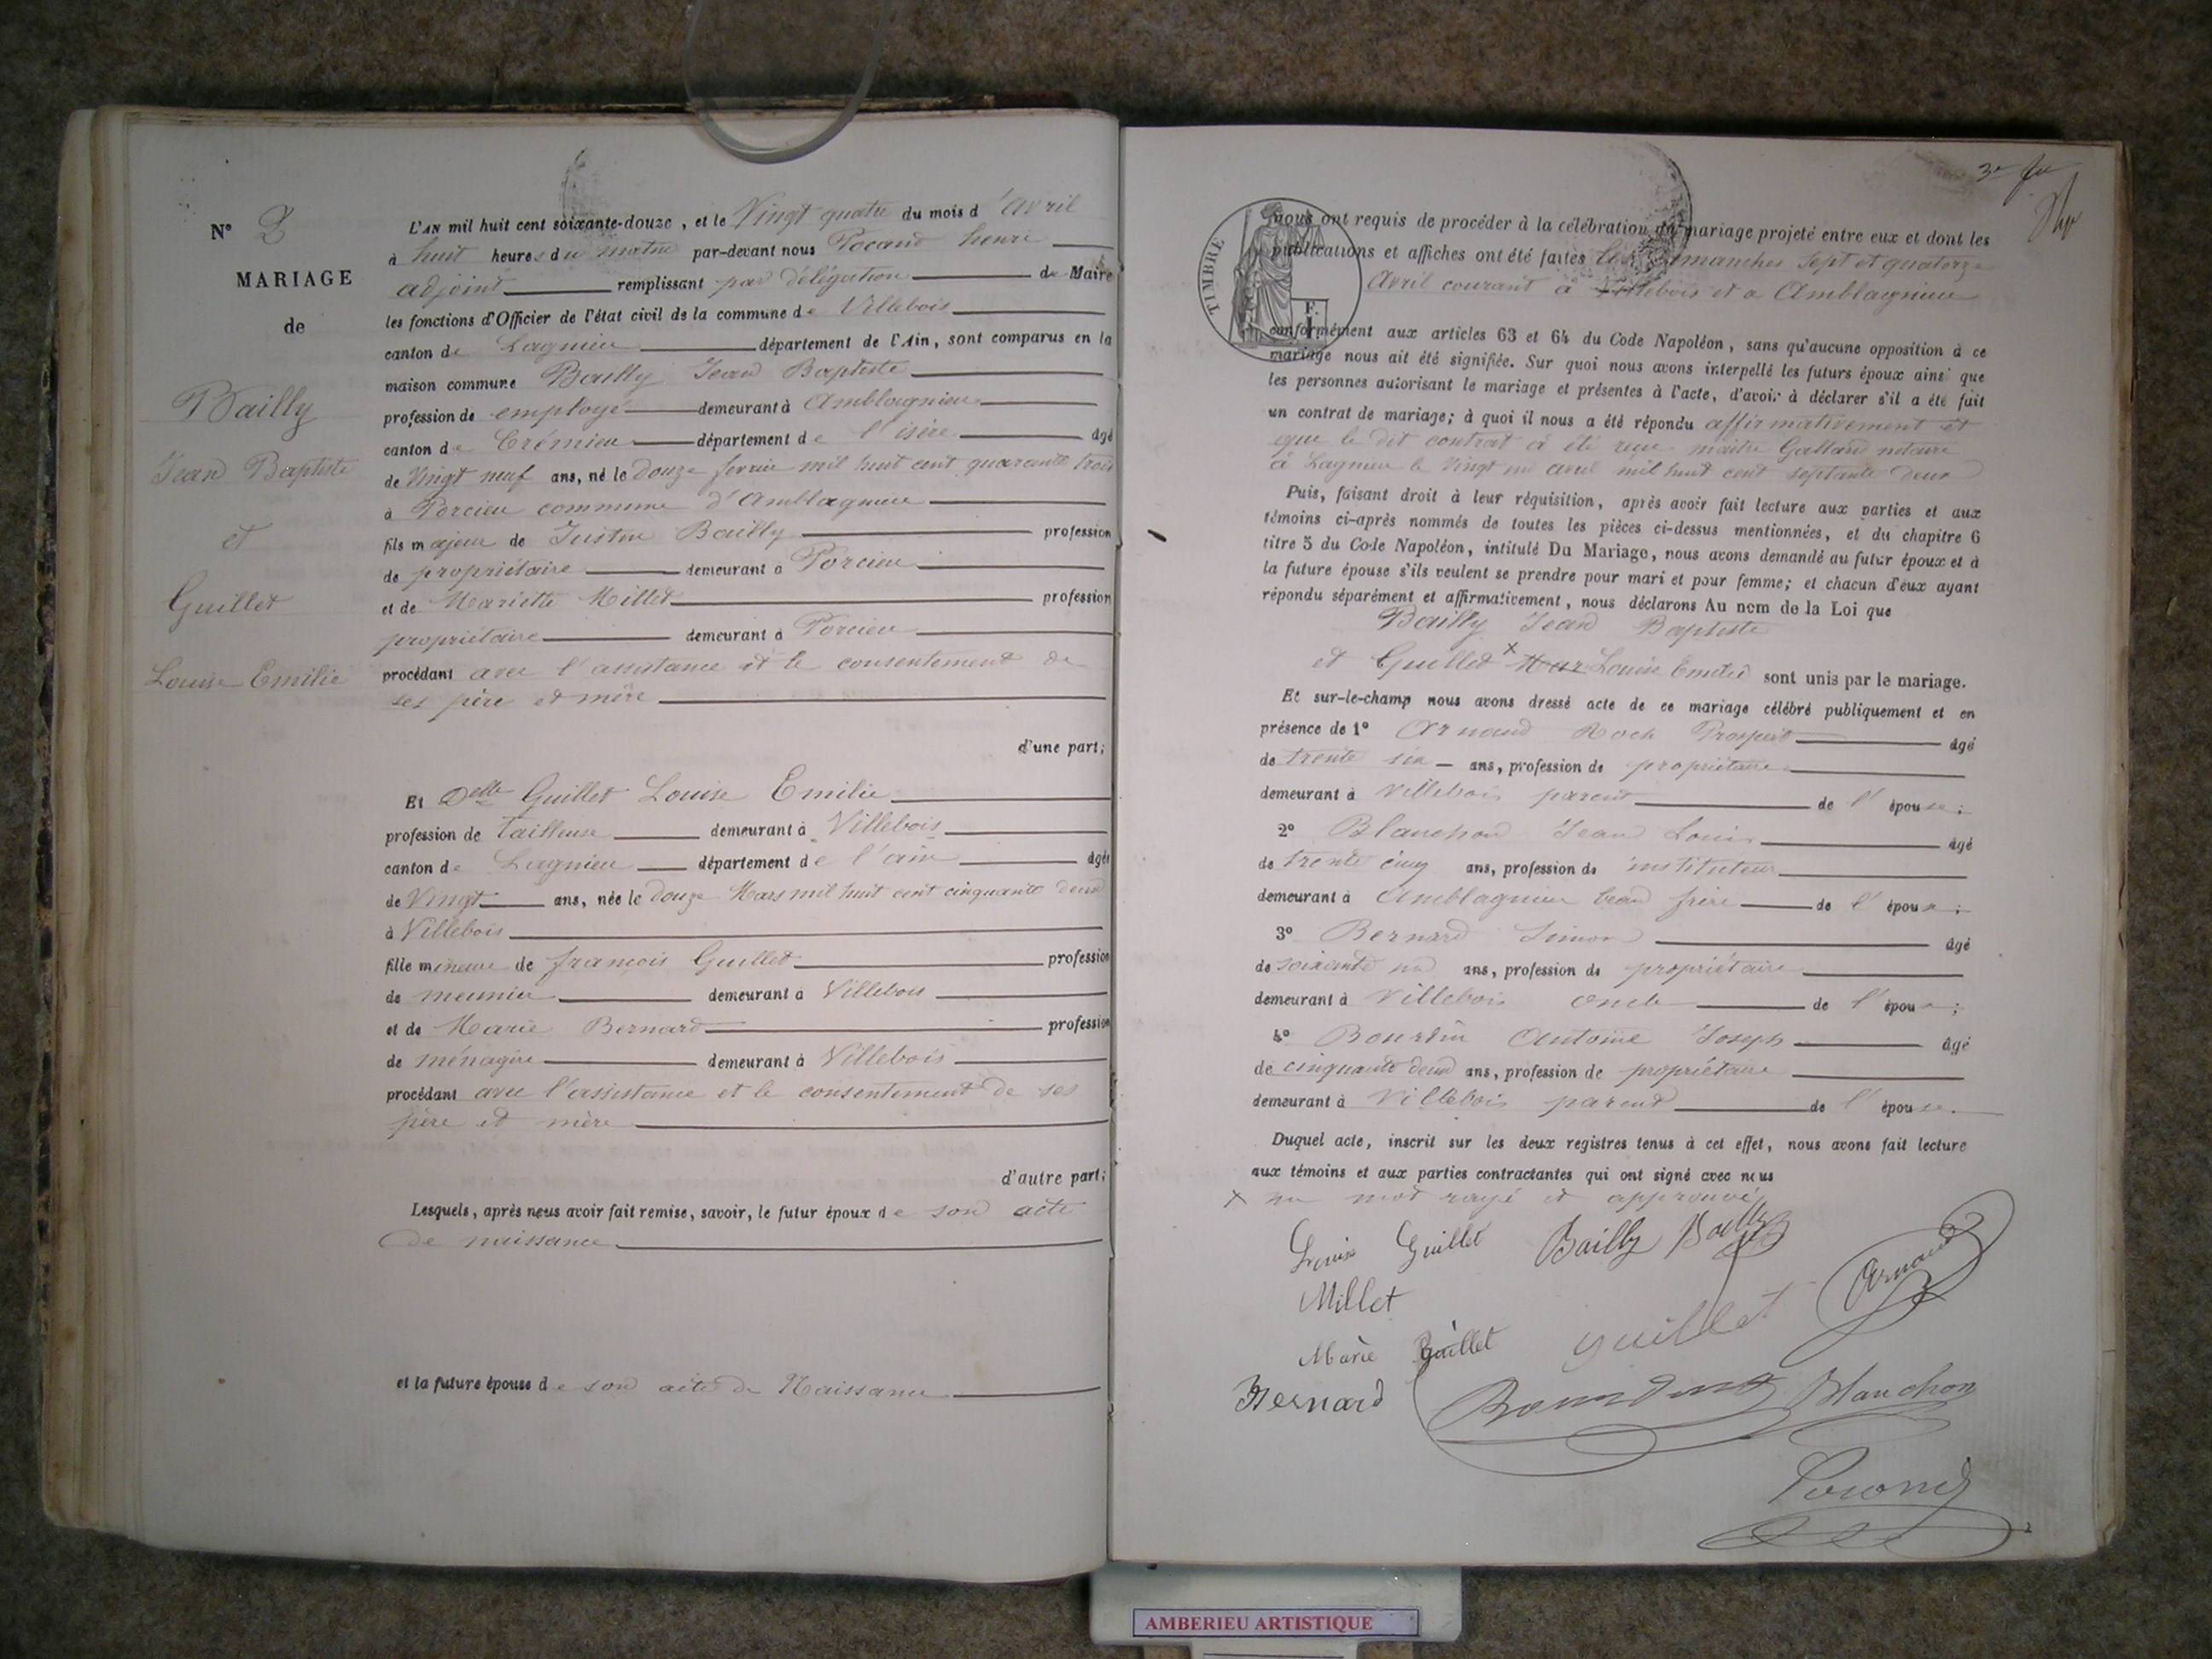 N° 3
MARIAGE
de
Bailly
Jean Baptiste
et
Guillet
Louise Emilie
L'AN mil huit cent soixante-douze, et le Vingt quatre du mois d'avril
à huit heures du matin par-devant nous Pocand henri
adjoint remplissant par délégation de Maire
les fonctions d'Officier de l'état civil de la commune de Villebois
canton de Lagnieu département de l'Ain, sont comparus en la
maison commune Bailly Jean Baptiste
profession de employé demeurant à Amblagnieu
canton de Crémieu département de l'isère âgé
de Vingt neuf ans, né le douze fevrier mil huit cent quarante trois
à Porcieu commune d'Amblagnieu
fils majeur de Justin Bailly profession
de propriétaire demeurant à Porcieu
et de Mariette Millet profession
propriétaire demeurant à Porcieu
procédant avec l'assistance et le consentement de
ses père et mère
d'une part;
Et Delle Guillet Louise Emilie
profession de tailleuse demeurant à Villebois
canton de Lagnieu département de l'ain âgée
de Vingt ans, née le douze Mars mil huit cent cinquante deux
à Villebois
fille mineure de françois Guillet profession
de meunier demeurant à Villebois
et de Marie Bernard profession
de ménagère demeurant à Villebois
procédant avec l'assistance et le consentement de ses
père et mère
d'autre part;
Lesquels, après nous avoir fait remise, savoir, le futur époux de son acte
de naissance
et la future épouse de son acte de Naissance
3e
TIMBRE
F.
1
nous ont requis de procéder à la célébration du mariage projeté entre eux et dont les
publications et affiches ont été faites les dimanches Sept et quatorze
Avril courant à Villebois et a Amblagnieu
conformément aux articles 63 et 64 du Code Napoléon, sans qu'aucune opposition à ce
mariage nous ait été signifiée. Sur quoi nous avons interpellé les futurs époux ainsi que
les personnes autorisant le mariage et présentes à l'acte, d'avoir à déclarer s'il a été fait
un contrat de mariage; à quoi il nous a été répondu affirmativement et
que le dit contrat a été reçu maitre Galland notaire
à Lagnieu le Vingt un avril mil huit cent septante deux
Puis, faisant droit à leur réquisition, après avoir fait lecture aux parties et aux
témoins ci-après nommés de toutes les pièces ci-dessus mentionnées, et du chapitre 6
titre 5 du Code Napoléon, intitulé Du Mariage, nous avons demandé au futur époux et à
la future épouse s'ils veulent se prendre pour mari et pour femme; et chacun d'eux ayant
répondu séparément et affirmativement, nous déclarons Au nom de la Loi que
Bailly Jean Baptiste
et Guillet x Mar Louise Emilie sont unis par le mariage.
Et sur-le-champ nous avons dressé acte de ce mariage célébré publiquement et en
présence de 1° Arnaud Roch Prosper âgé
de trente six ans, profession de propriétaire
demeurant à Villebois parent de l'épouse;
2° Blanchon Jean Louis âgé
de trente cinq ans, profession de instituteur
demeurant à Amblagnieu beau frère de l'époux;
3° Bernard Simon âgé
de soixante un ans, profession de propriétaire
demeurant à Villebois oncle de l'épouse;
4° Bourdin Antoine Joseph âgé
de cinquante deux ans, profession de propriétaire
demeurant à Villebois parent de l'épouse.
Duquel acte, inscrit sur les deux registres tenus à cet effet, nous avons fait lecture
aux témoins et aux parties contractantes qui ont signé avec nous
x un mot rayé et approuvé
Louise Guillet Bailly Bailly
Millet Arnaud
Marie Guillet Guillet
Bernard Bourdin Blanchon
AMBERIEU ARTISTIQUE